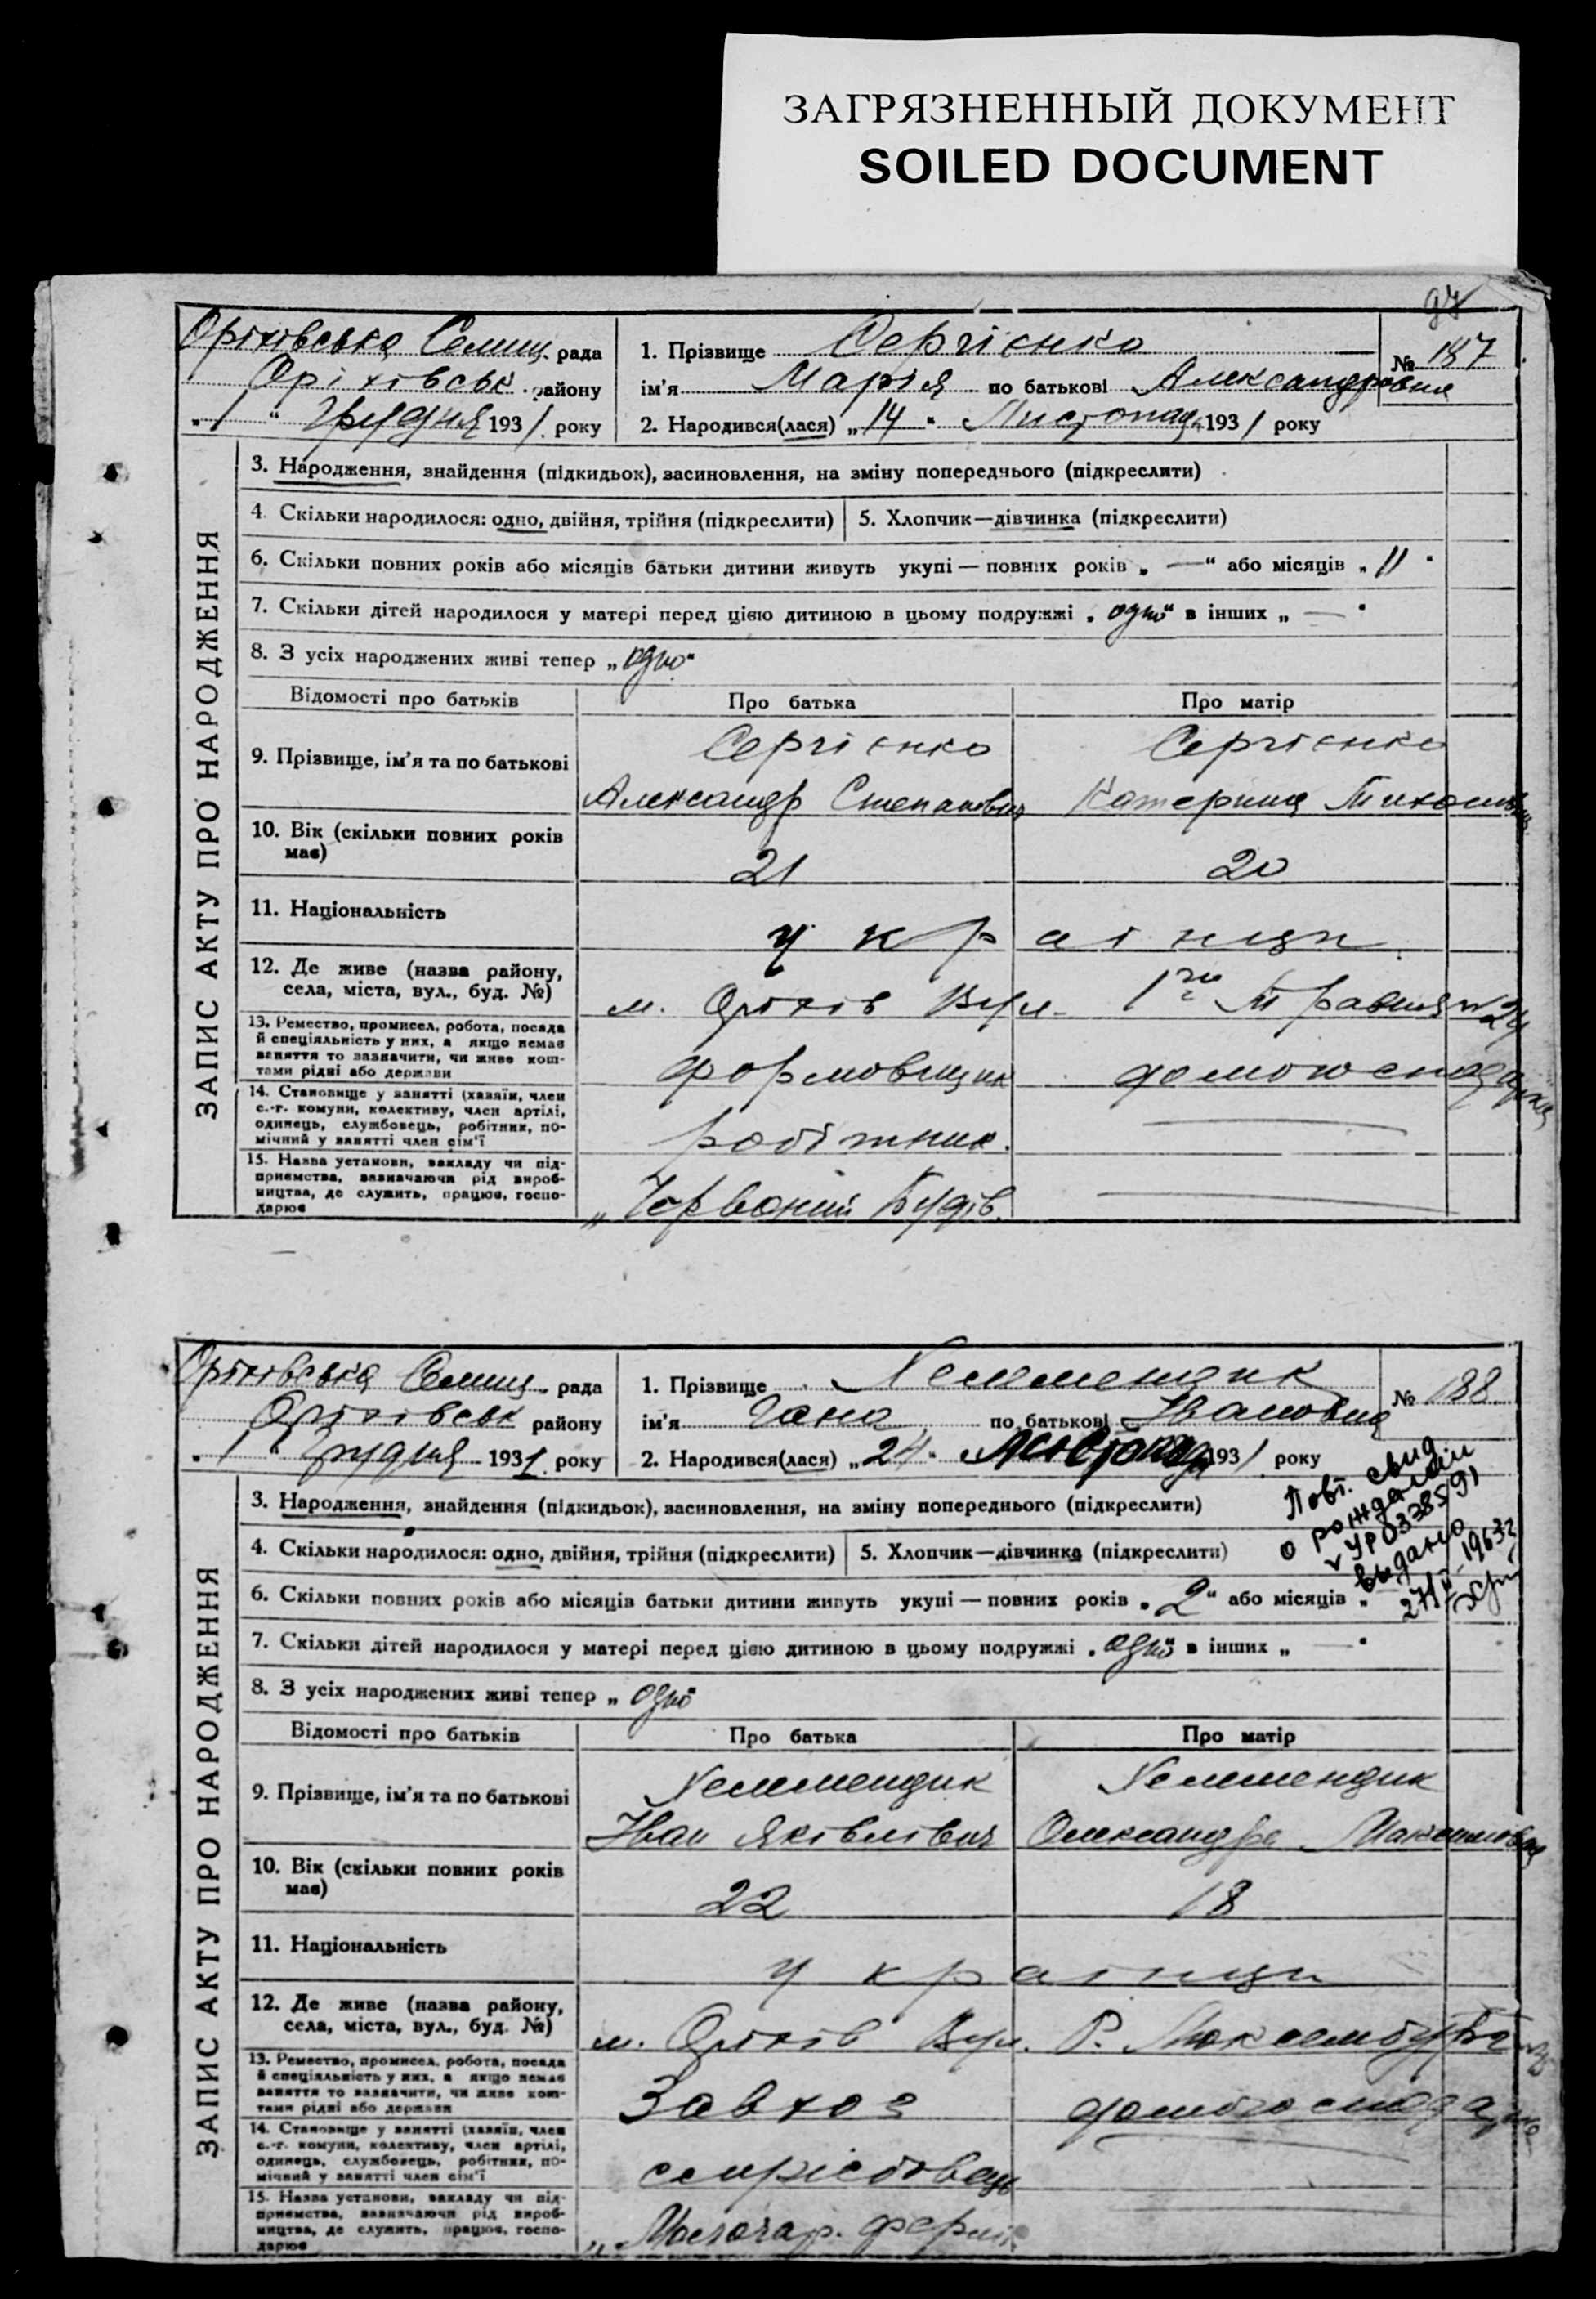 ЗАГРЯЗНЕННЫЙ ДОКУМЕНТ
SOILED DOCUMENT
97
Оріхівська Селищ. рада
Оріхівськ. району
„1“ Грудня 1931. року
1. Прізвище Сергієнко
№ 187
ім'я Марія по батькові Александровна
2. Народився(лася) „14“ Листопад. 1931 року
ЗАПИС АКТУ ПРО НАРОДЖЕННЯ
3. Народження, знайдення (підкидьок), засиновлення, на зміну попереднього (підкреслити)
4. Скільки народилося: одно, двійня, трійня (підкреслити) 5. Хлопчик—дівчинка (підкреслити)
6. Скільки повних років або місяців батьки дитини живуть укупі — повних років „ — “ або місяців „ 11 “
7. Скільки дітей народилося у матері перед цією дитиною в цьому подружжі „ одно “ в інших „ — “
8. З усіх народжених живі тепер „ одно “
Відомості про батьків Про батька Про матір
9. Прізвище, ім'я та по батькові
Сергієнко Сергієнко
Александр Степанович Катерина
10. Вік (скільки повних років має)
21 20
11. Національність
українци
12. Де живе (назва району, села, міста, вул., буд. №)
м. Оріхів Вул. 1го Травня №
13. Ремество, промисел, робота, посада й спеціяльність у них, а якщо немає заняття то зазначити, чи живе коштами рідні або держави
формовщик домогосподарка
14. Становище у занятті (хазяїн, член с.-г. комуни, колективу, член артілі, одинець, службовець, робітник, помічний у занятті член сім'ї
робітник.
15. Назва установи, закладу чи підприємства, зазначаючи рід виробництва, де служить, працює, господарює
„Червоний Будів.
Оріхівська Селищ. рада
Оріхівськ району
„1“ Грудня 1931. року
1. Прізвище
№ 188
ім'я Гана по батькові Івановна
2. Народився(лася) „24“ Листопад 1931 року
Повт. свид
о рождении
УР 0338591
выдано
1963г
ЗАПИС АКТУ ПРО НАРОДЖЕННЯ
3. Народження, знайдення (підкидьок), засиновлення, на зміну попереднього (підкреслити)
4. Скільки народилося: одно, двійня, трійня (підкреслити) 5. Хлопчик—дівчинка (підкреслити)
6. Скільки повних років або місяців батьки дитини живуть укупі — повних років „ 2 “ або місяців „
7. Скільки дітей народилося у матері перед цією дитиною в цьому подружжі „ одно “ в інших „ — “
8. З усіх народжених живі тепер „ одно “
Відомості про батьків Про батька Про матір
9. Прізвище, ім'я та по батькові
Іван Яківлівич Олександра Максимовна
10. Вік (скільки повних років має)
22 18
11. Національність
українци
12. Де живе (назва району, села, міста, вул., буд. №)
м. Оріхів Вул. Р. Люксембург
13. Ремество, промисел, робота, посада й спеціяльність у них, а якщо немає заняття то зазначити, чи живе коштами рідні або держави
Завхоз домогосподарка
14. Становище у занятті (хазяїн, член с.-г. комуни, колективу, член артілі, одинець, службовець, робітник, помічний у занятті член сім'ї
15. Назва установи, закладу чи підприємства, зазначаючи рід виробництва, де служить, працює, господарює